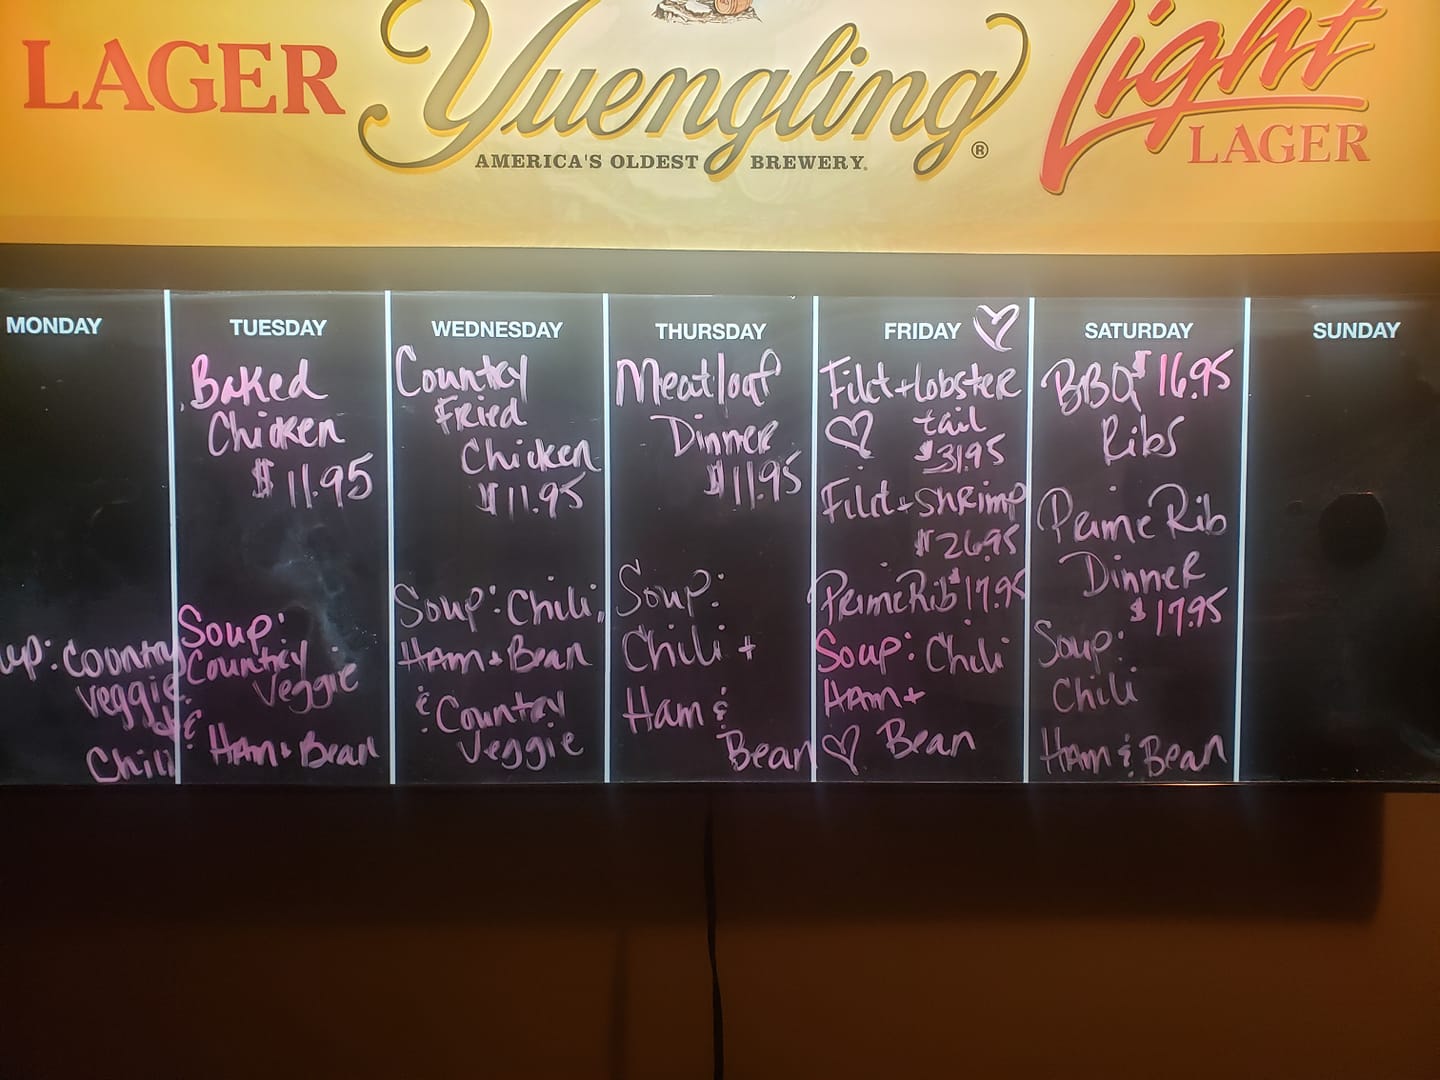 LAGER
Yuengling
®
AMERICA'S OLDEST BREWERY.
Light
LAGER
MONDAY
up: Country
Veggie
&
Chili
TUESDAY
Baked
Chicken
$11.95
Soup:
Country
Veggie
&
Ham + Bean
WEDNESDAY
Country
Fried
Chicken
$11.95
Soup: Chili,
Ham + Bean
& Country
Veggie
THURSDAY
Meatloaf
Dinner
$11.95
Soup:
Chili +
Ham &
Bean
FRIDAY
Filet + lobster
tail
$31.95
Filet + Shrimp
$26.95
Prime Rib $17.95
Soup: Chili
Ham +
Bean
SATURDAY
BBQ $16.95
Ribs
Prime Rib
Dinner
$17.95
Soup:
Chili
Ham & Bean
SUNDAY